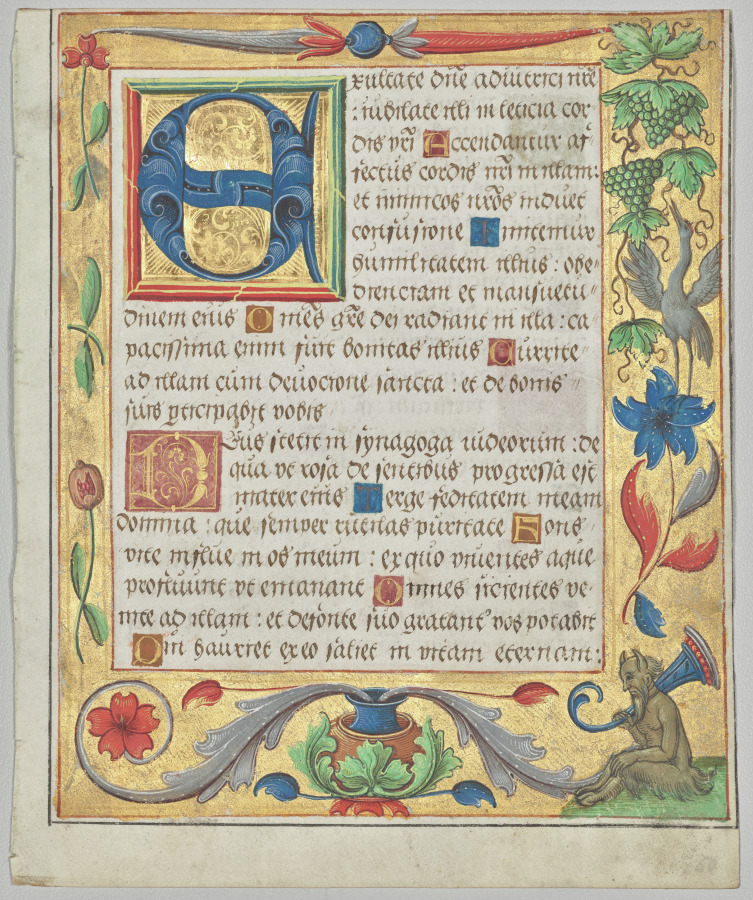 Exultate dn̄e adiutrici nr̄e
: iubilate illi in leticia cor
dis vr̄i Accendantur af-
fectus cordis nr̄i in illam:
et inimicos nr̄os induet
confusione Imitemur
humilitatem illius : obe"
dienciam et mansuetu-
dinem eius Om̄es gr̄e dei radiant in illa: ca
pacissima enim fuit bonitas illius Currite-
ad illam cum deuocione sancta : et de bonis "
suis
vobis
Deus stetit in synagoga iudeorum : de
qua vt rosa de sentibus progressa est
mater eius Terge feditatem meam
domina : que semper rutilas puritate Fons-
vite influe in os meum : ex quo viuentes aque
profluunt vt emanant Omnes sicientes ve-
nite ad illam : et de fonte suo
vos potabit
Qui hauriet ex eo saliet in vitam eternam: